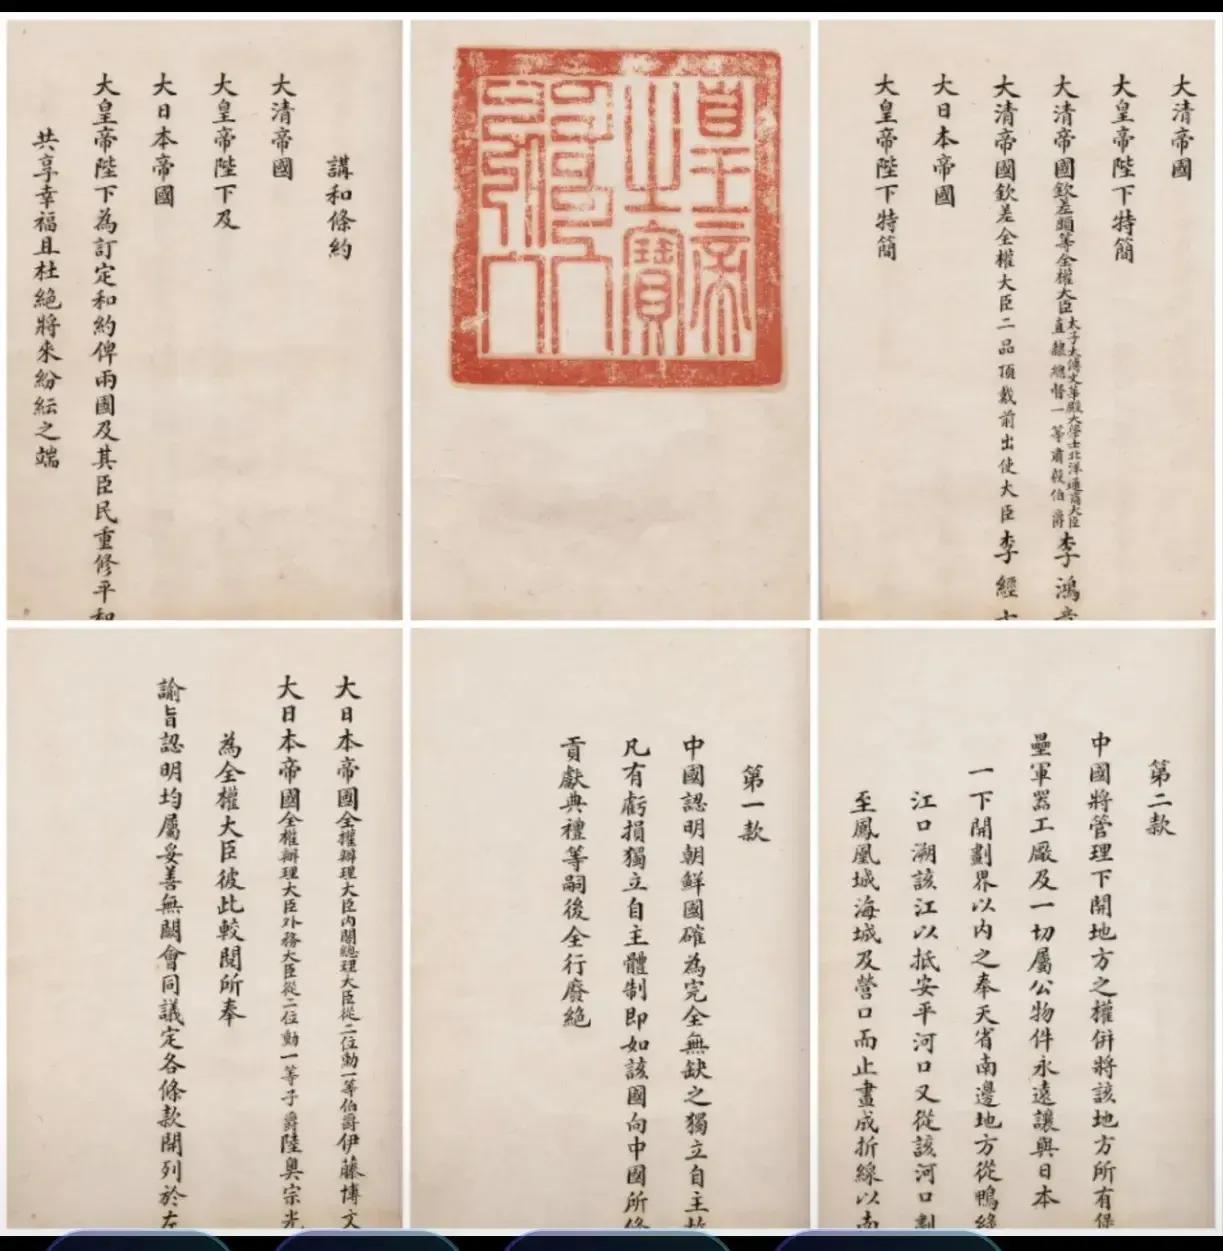 講和條約
大清帝國
大皇帝陛下及
大日本帝國
大皇帝陛下為訂定和約俾兩國及其臣民重修平和
共享幸福且杜絕將來紛紜之端
皇帝
之寶
大清帝國
大皇帝陛下特簡
大清帝國欽差頭等全權大臣太子太傅文華殿大學士北洋通商大臣直隸總督一等肅毅伯爵李鴻章
大清帝國欽差全權大臣二品頂戴前出使大臣李經
大日本帝國
大皇帝陛下特簡
大日本帝國全權辦理大臣內閣總理大臣從二位勳一等伯爵伊藤博文
大日本帝國全權辦理大臣外務大臣從二位勳一等子爵陸奧宗光
為全權大臣彼此較閱所奉
諭旨認明均屬妥善無闕會同議定各條款開列於左
第一款
中國認明朝鮮國確為完全無缺之獨立自主故
凡有虧損獨立自主體制即如該國向中國所修
貢獻典禮等嗣後全行廢絕
第二款
中國將管理下開地方之權併將該地方所有堡
壘軍器工廠及一切屬公物件永遠讓與日本
一下開劃界以內之奉天省南邊地方從鴨綠
江口溯該江以抵安平河口又從該河口劃
至鳳凰城海城及營口而止畫成折線以南